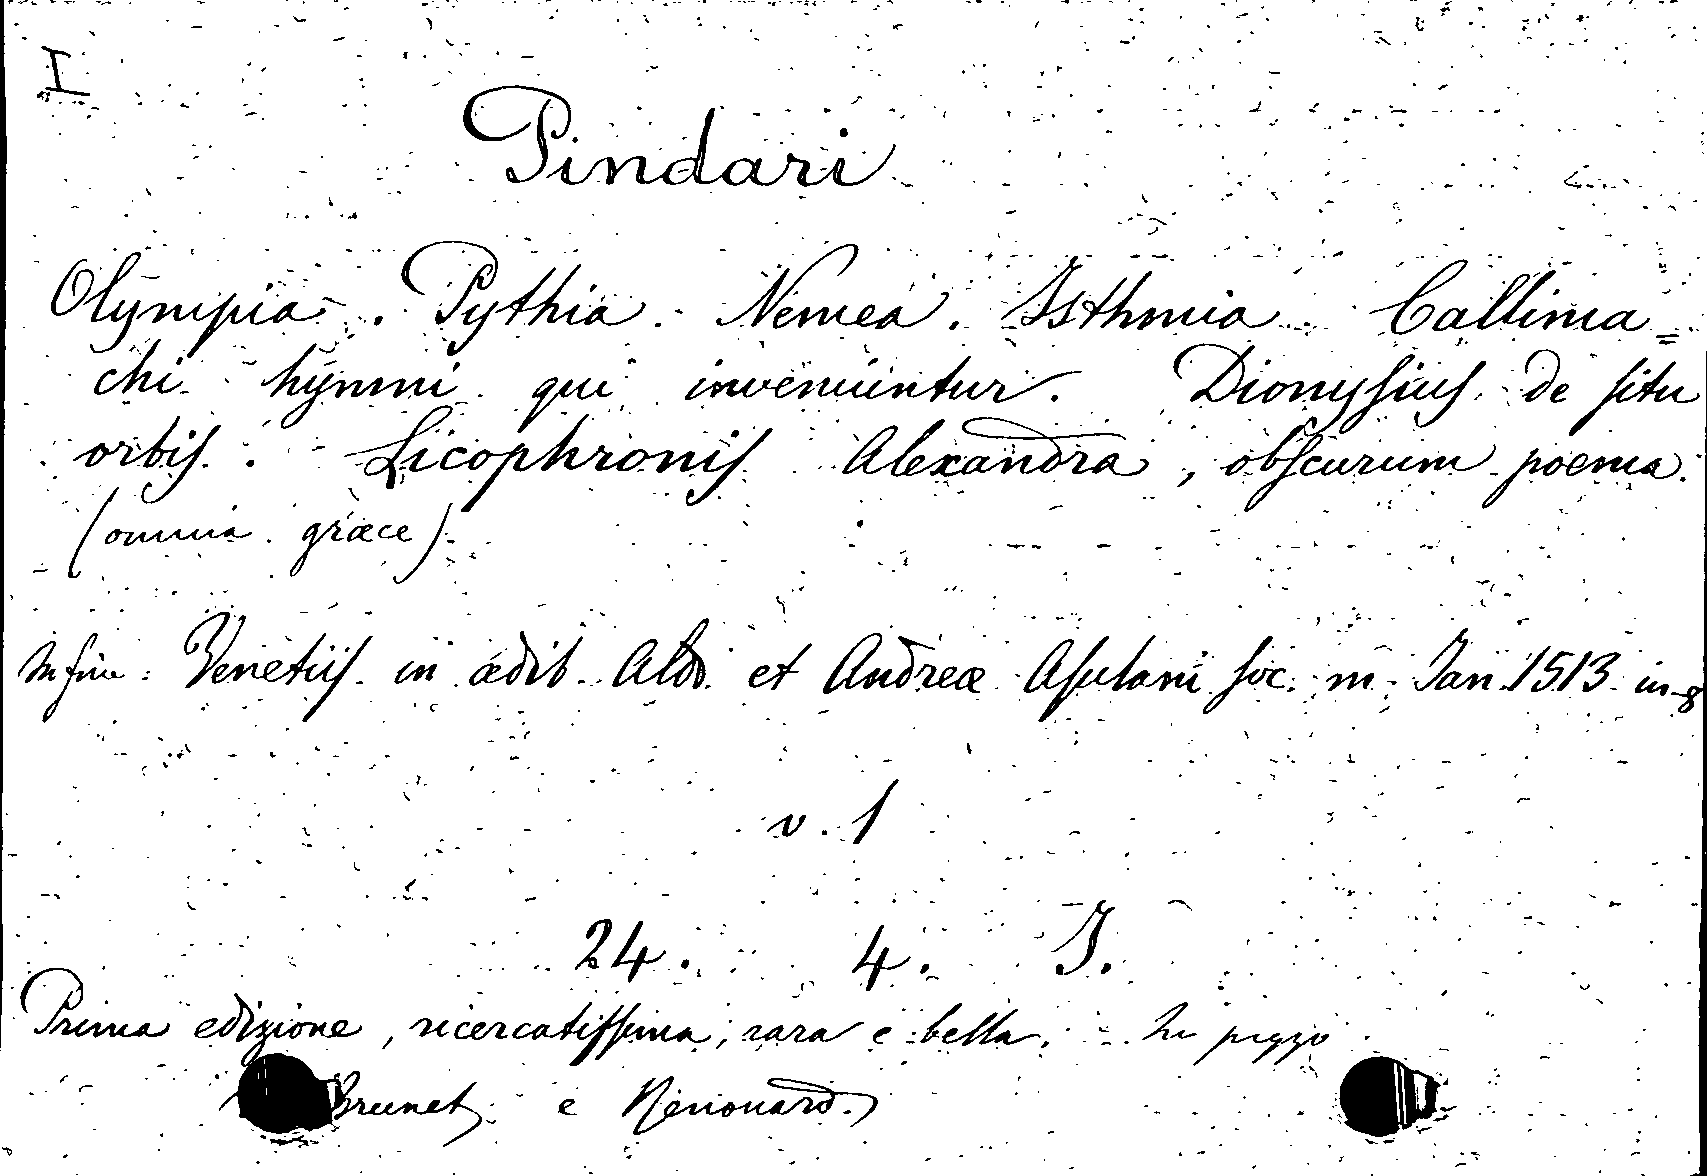 I
Pindari
Olympia. Pythia. Nemea. Isthmia. Callima=
chi hymni qui inveniuntur. Dionysius de situ
orbis. Licophronis Alexandra, obscurum poema.
(omnia græce).
In fine: Venetiis in ædib. Aldi et Andreæ Asulani soc. m. Jan. 1513 in-8
v. 1
24. 4. J.
Prima edizione, ricercatissima, rara e bella.
Brunet e Renouard.)